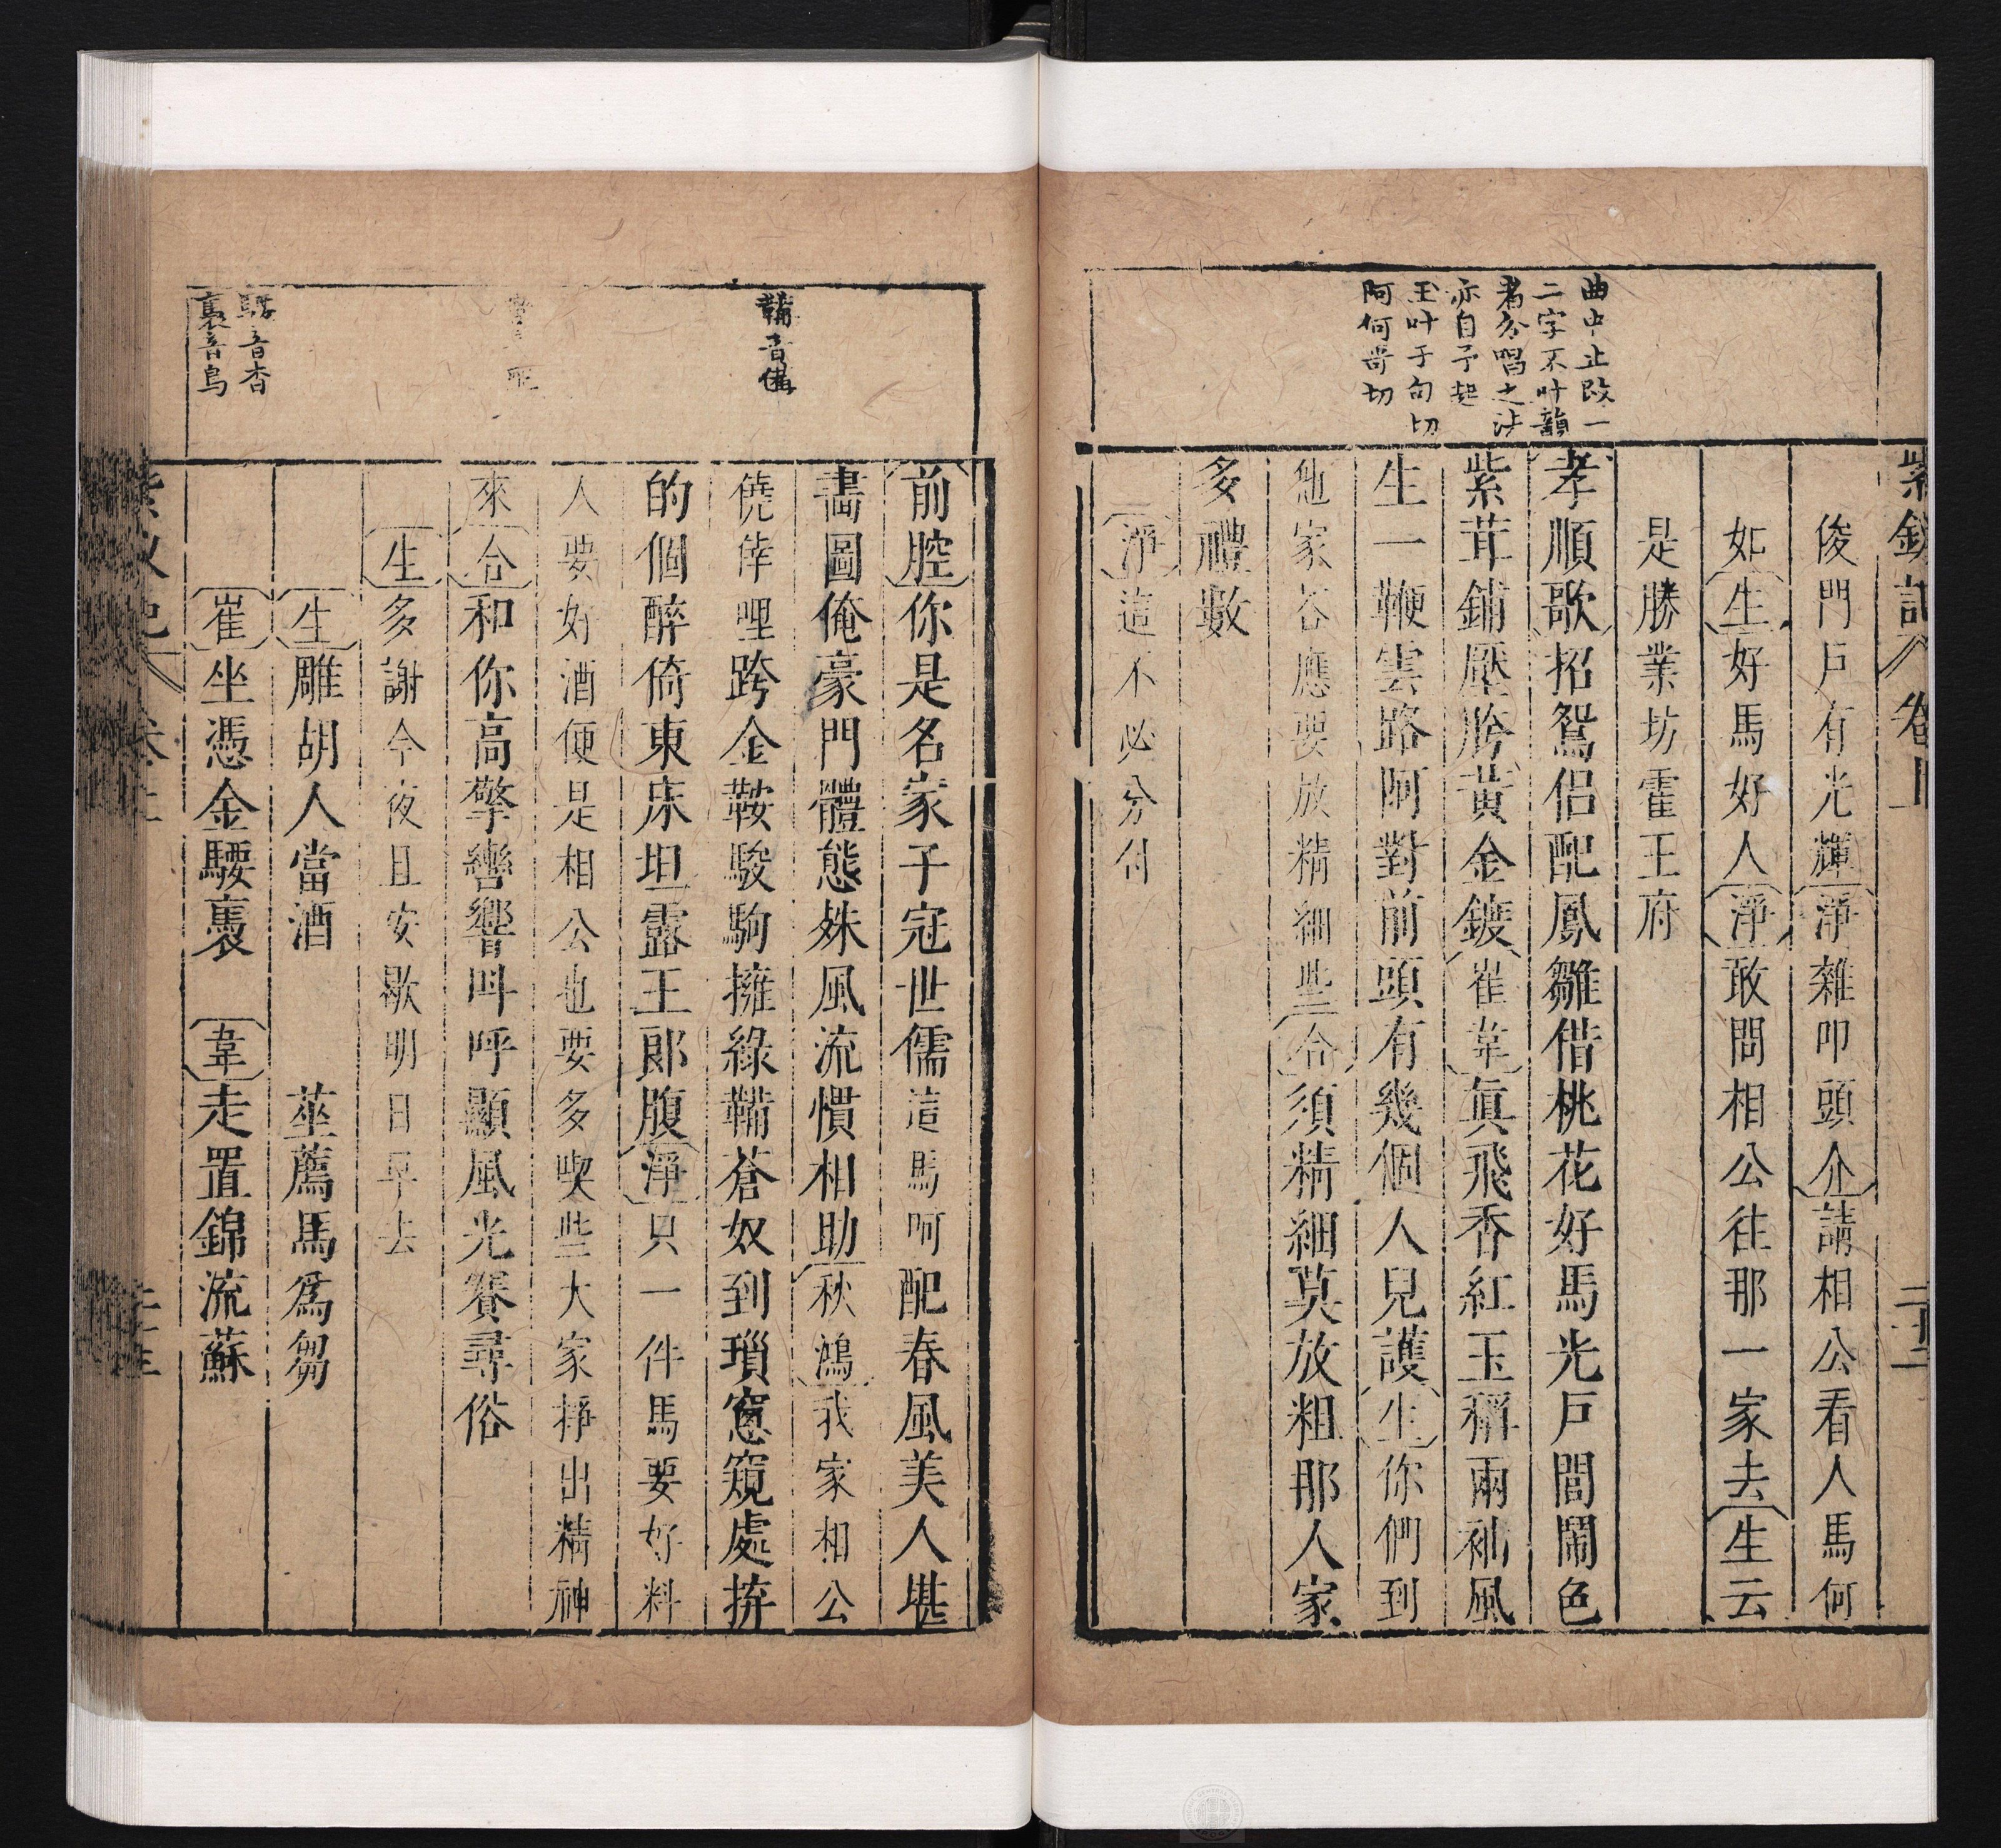 曲中止改一
二字不叶韻
者分唱之法
亦自予起
玉叶于句切
阿何哥切
紫釵記 卷上 二十二
俊門戶有光輝淨雜叩頭介請相公看人馬何
如生好馬好人淨敢問相公往那一家去生云
是勝業坊霍王府
孝順歌招鴛侶配鳳雛借桃花好馬光戶閭鬧色
紫茸鋪壓胯黃金鍍崔韋眞飛香紅玉稱兩袖風
生一鞭雲路阿對前頭有幾個人兒護生你們到
他家答應要放精細些合須精細莫放粗那人家
多禮數
淨這不必分付
鞴音備
騕音杳
褭音鳥
前腔你是名家子冠世儒這馬呵配春風美人堪
畵圖俺豪門體態姝風流慣相助秋鴻我家相公
僥倖哩跨金鞍駿駒擁綠鞴蒼奴到瑣窻窺處拚
的個醉倚東床坦露王郎腹淨只一件馬要好料
人要好酒便是相公也要多喫些大家掙出精神
來合和你高擎轡響呌呼顯風光賽尋俗
生多謝今夜且安歇明日早去
生雕胡人當酒 莝薦馬爲芻
崔坐憑金騕褭 韋走置錦流蘇